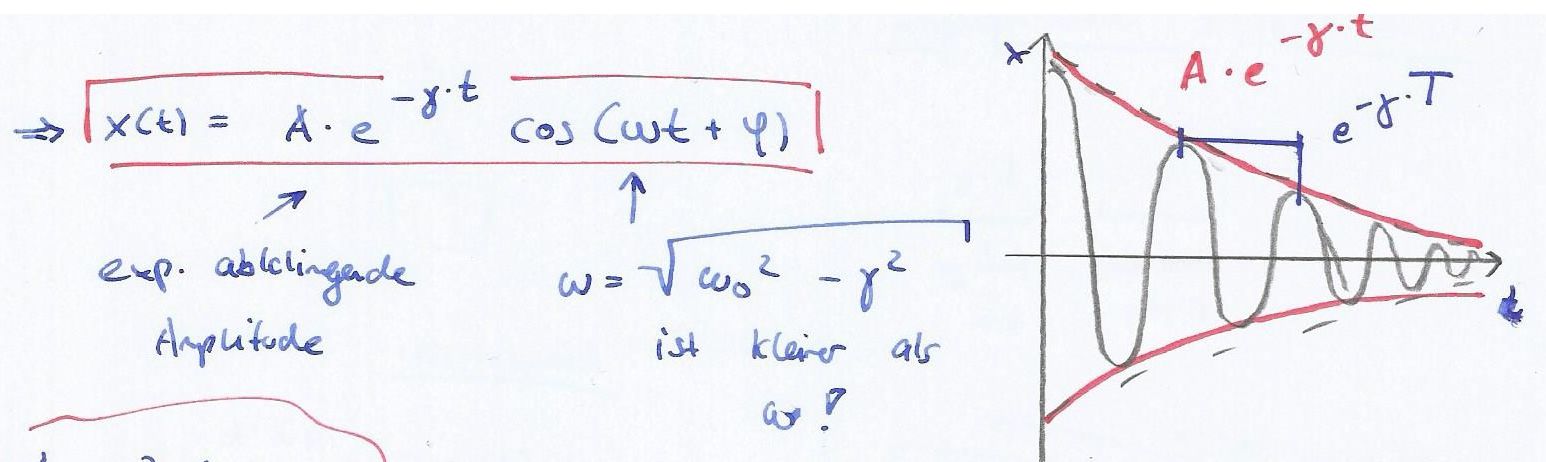 ⇒ x(t) = A · e^{-γ·t} cos (ωt + φ)
exp. abklingende
Amplitude
ω = √(ω₀² - γ²)
ist kleiner als
x
A · e^{-γ·t}
e^{-γ·T}
t